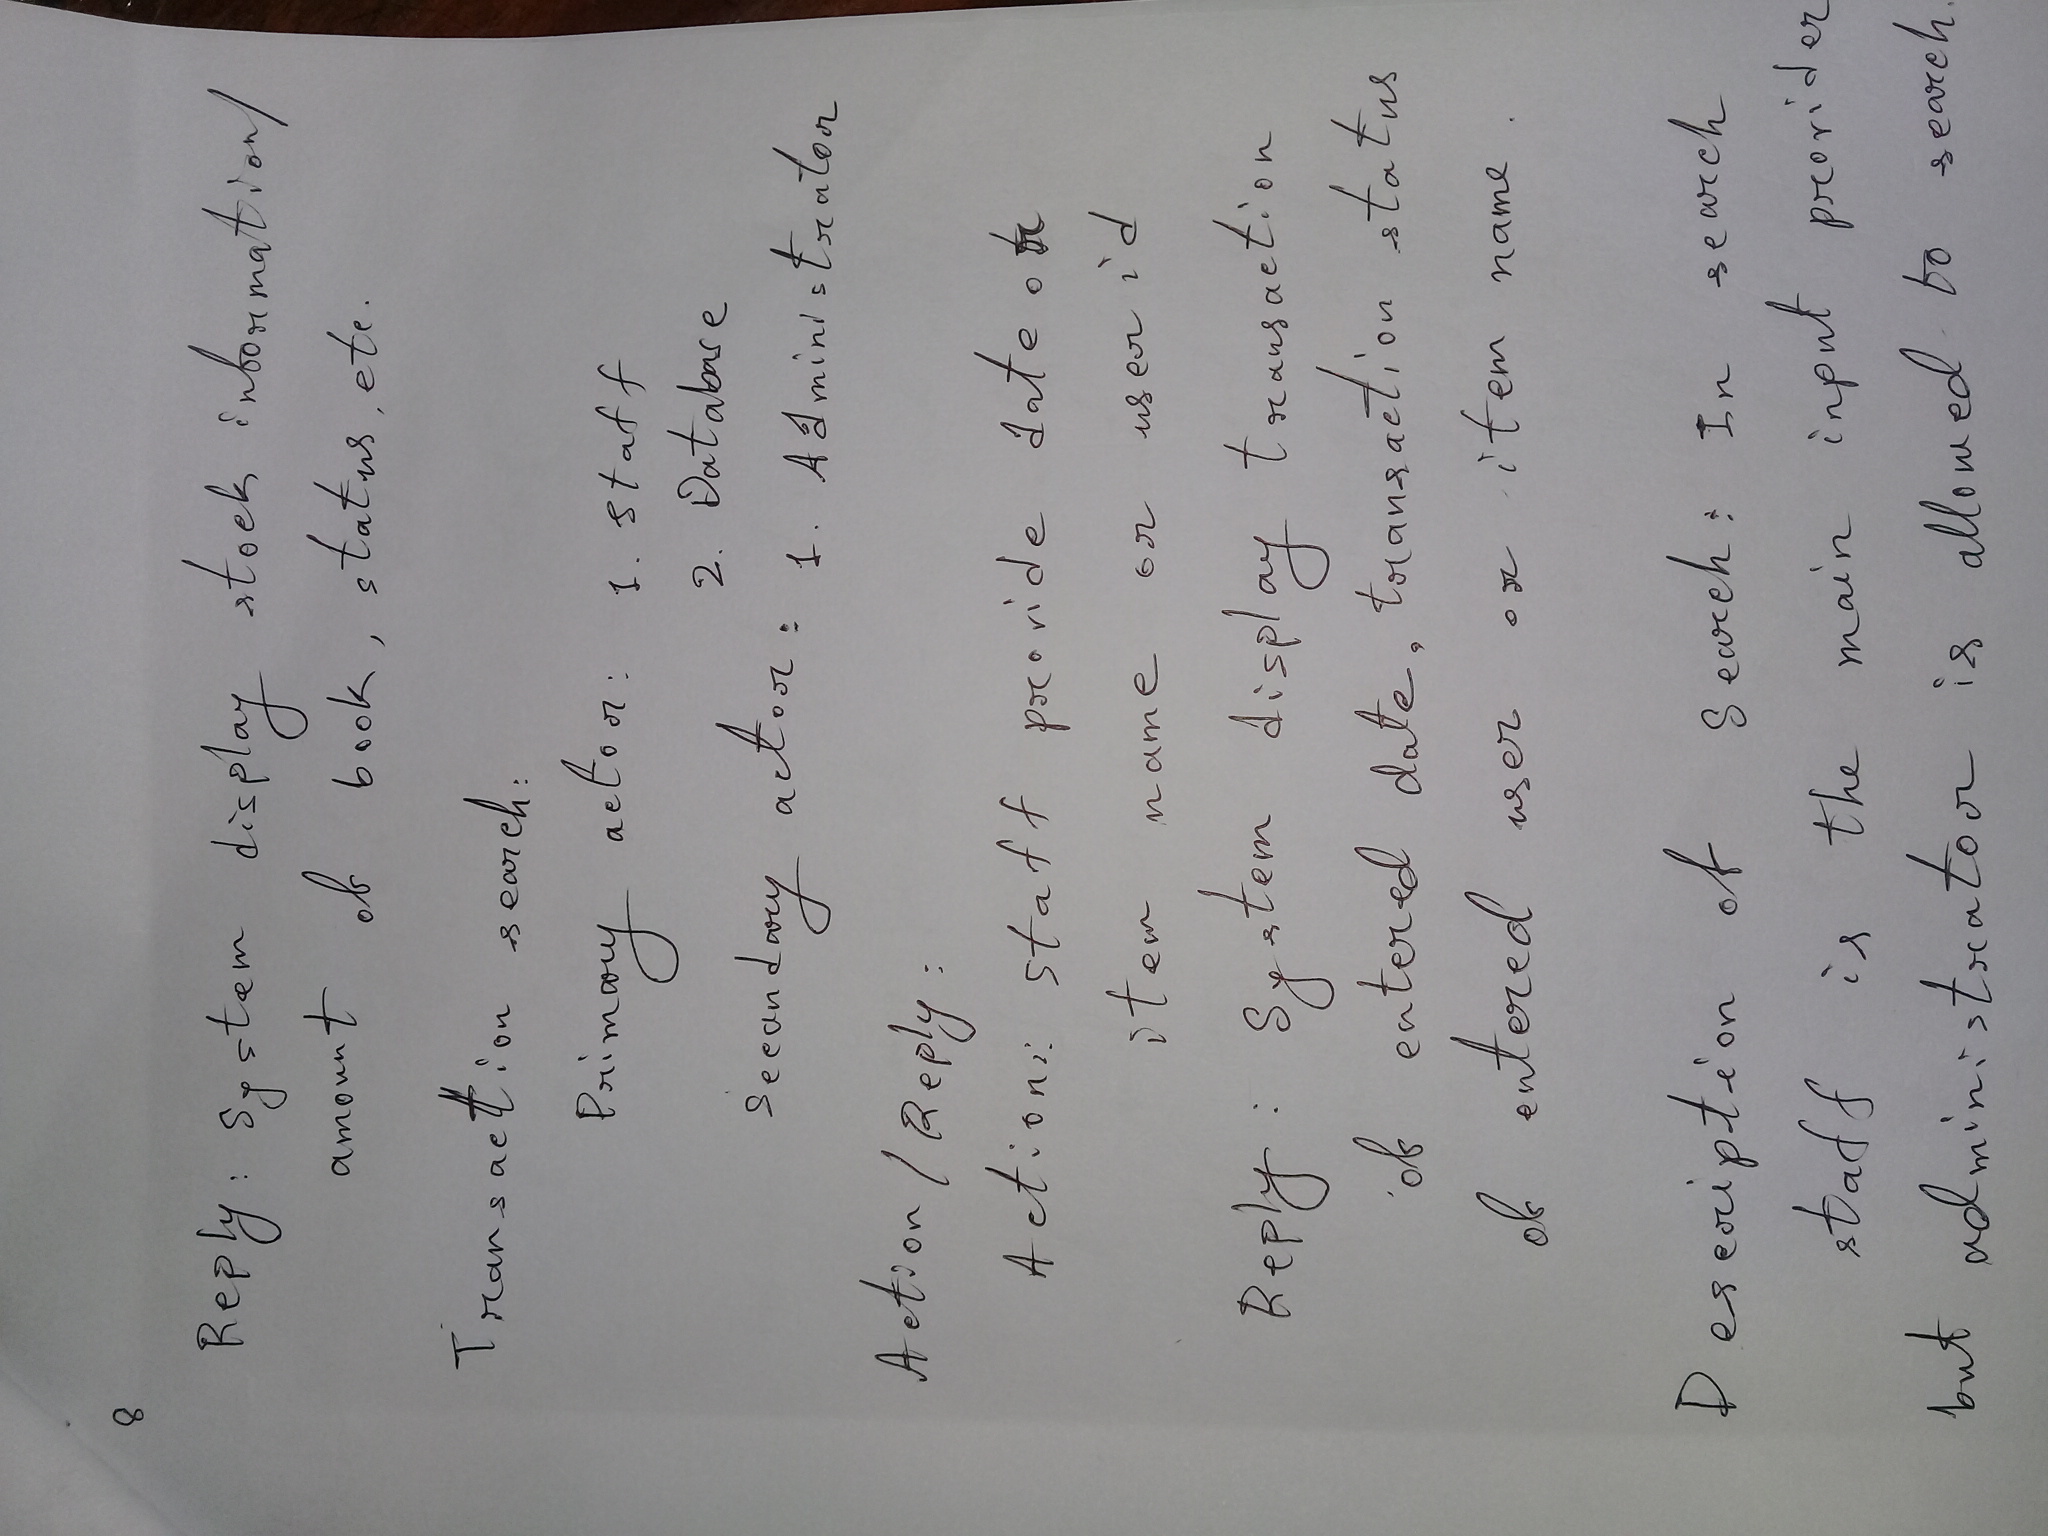 8
Reply: System display stock information/
amount of book, status, etc.
Transaction search:
Primary actor: 1. Staff
2. Database
Secondary actor: 1. Administrator
Action / Reply:
Action: staff provide date or
item name or user id
Reply: System display transaction
of entered date, transaction status
of entered user or item name.
Description of Search: In search
staff is the main input provider
but administrator is allowed to search.